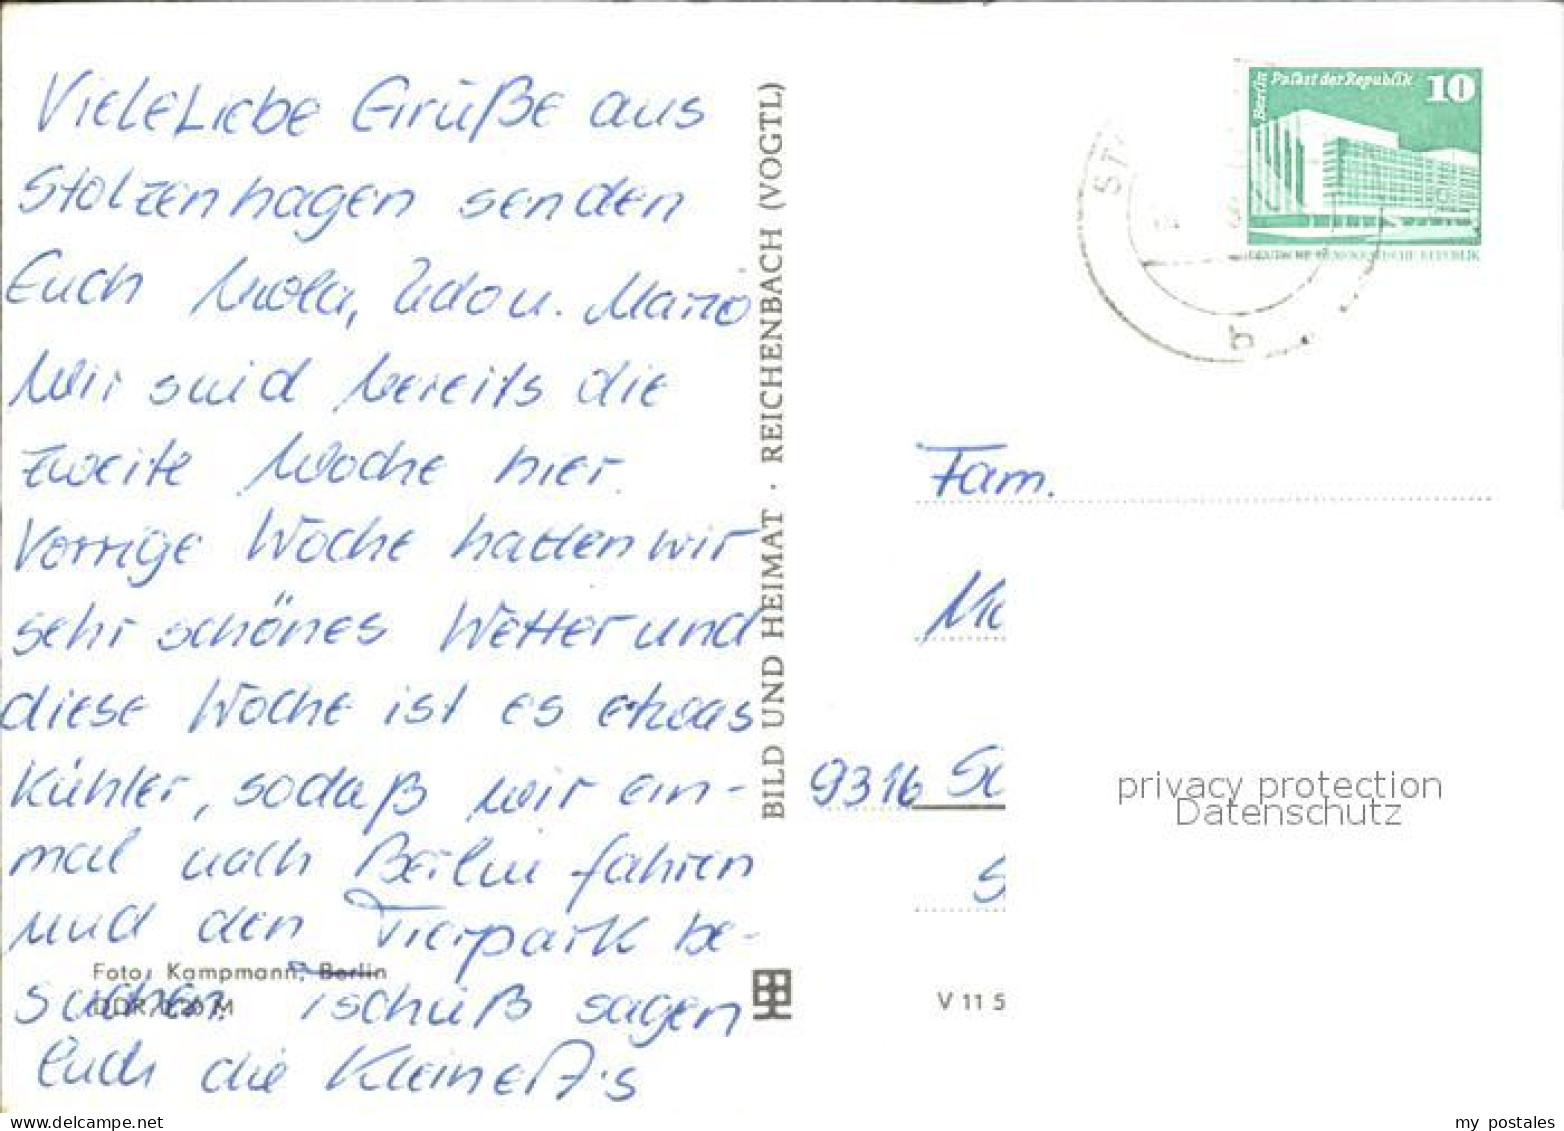 Viele Liebe Grüße aus
Stolzenhagen senden
Euch Viola, Udo u. Mario
Wir sind bereits die
zweite Woche hier.
Vorrige Woche hatten wir
sehr schönes Wetter und
diese Woche ist es etwas
Kühler, sodaß wir ein-
mal nach Berlin fahren
und den Tierpark be-
suchen. Tschüß sagen
Euch die Kleinert's
Foto: Kampmann, Berlin
DDR 0,20 M
BILD UND HEIMAT · REICHENBACH (VOGTL)
Berlin Palast der Republik 10
DEUTSCHE DEMOKRATISCHE REPUBLIK
ST
b
Fam.
9316
V 11 5
privacy protection
Datenschutz
my postales